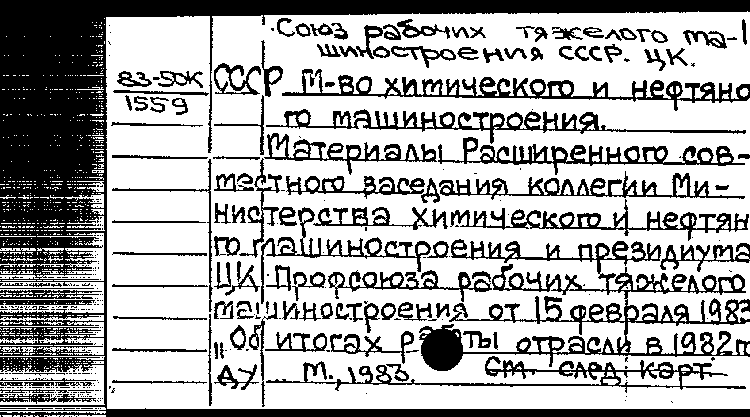 Союз рабочих тяжелого ма-
шиностроения СССР. ЦК.
83-50К
1559
СССР М-во химического и нефтяно
го машиностроения.
Материалы Расширенного сов-
местного заседания коллегии Ми-
нистерства химического и нефтян
го машиностроения и президиума
ЦК Профсоюза рабочих тяжелого
машиностроения от 15 февраля 1983
"Об итогах работы отрасли в 1982г
ДУ М., 1983. См. след. карт.